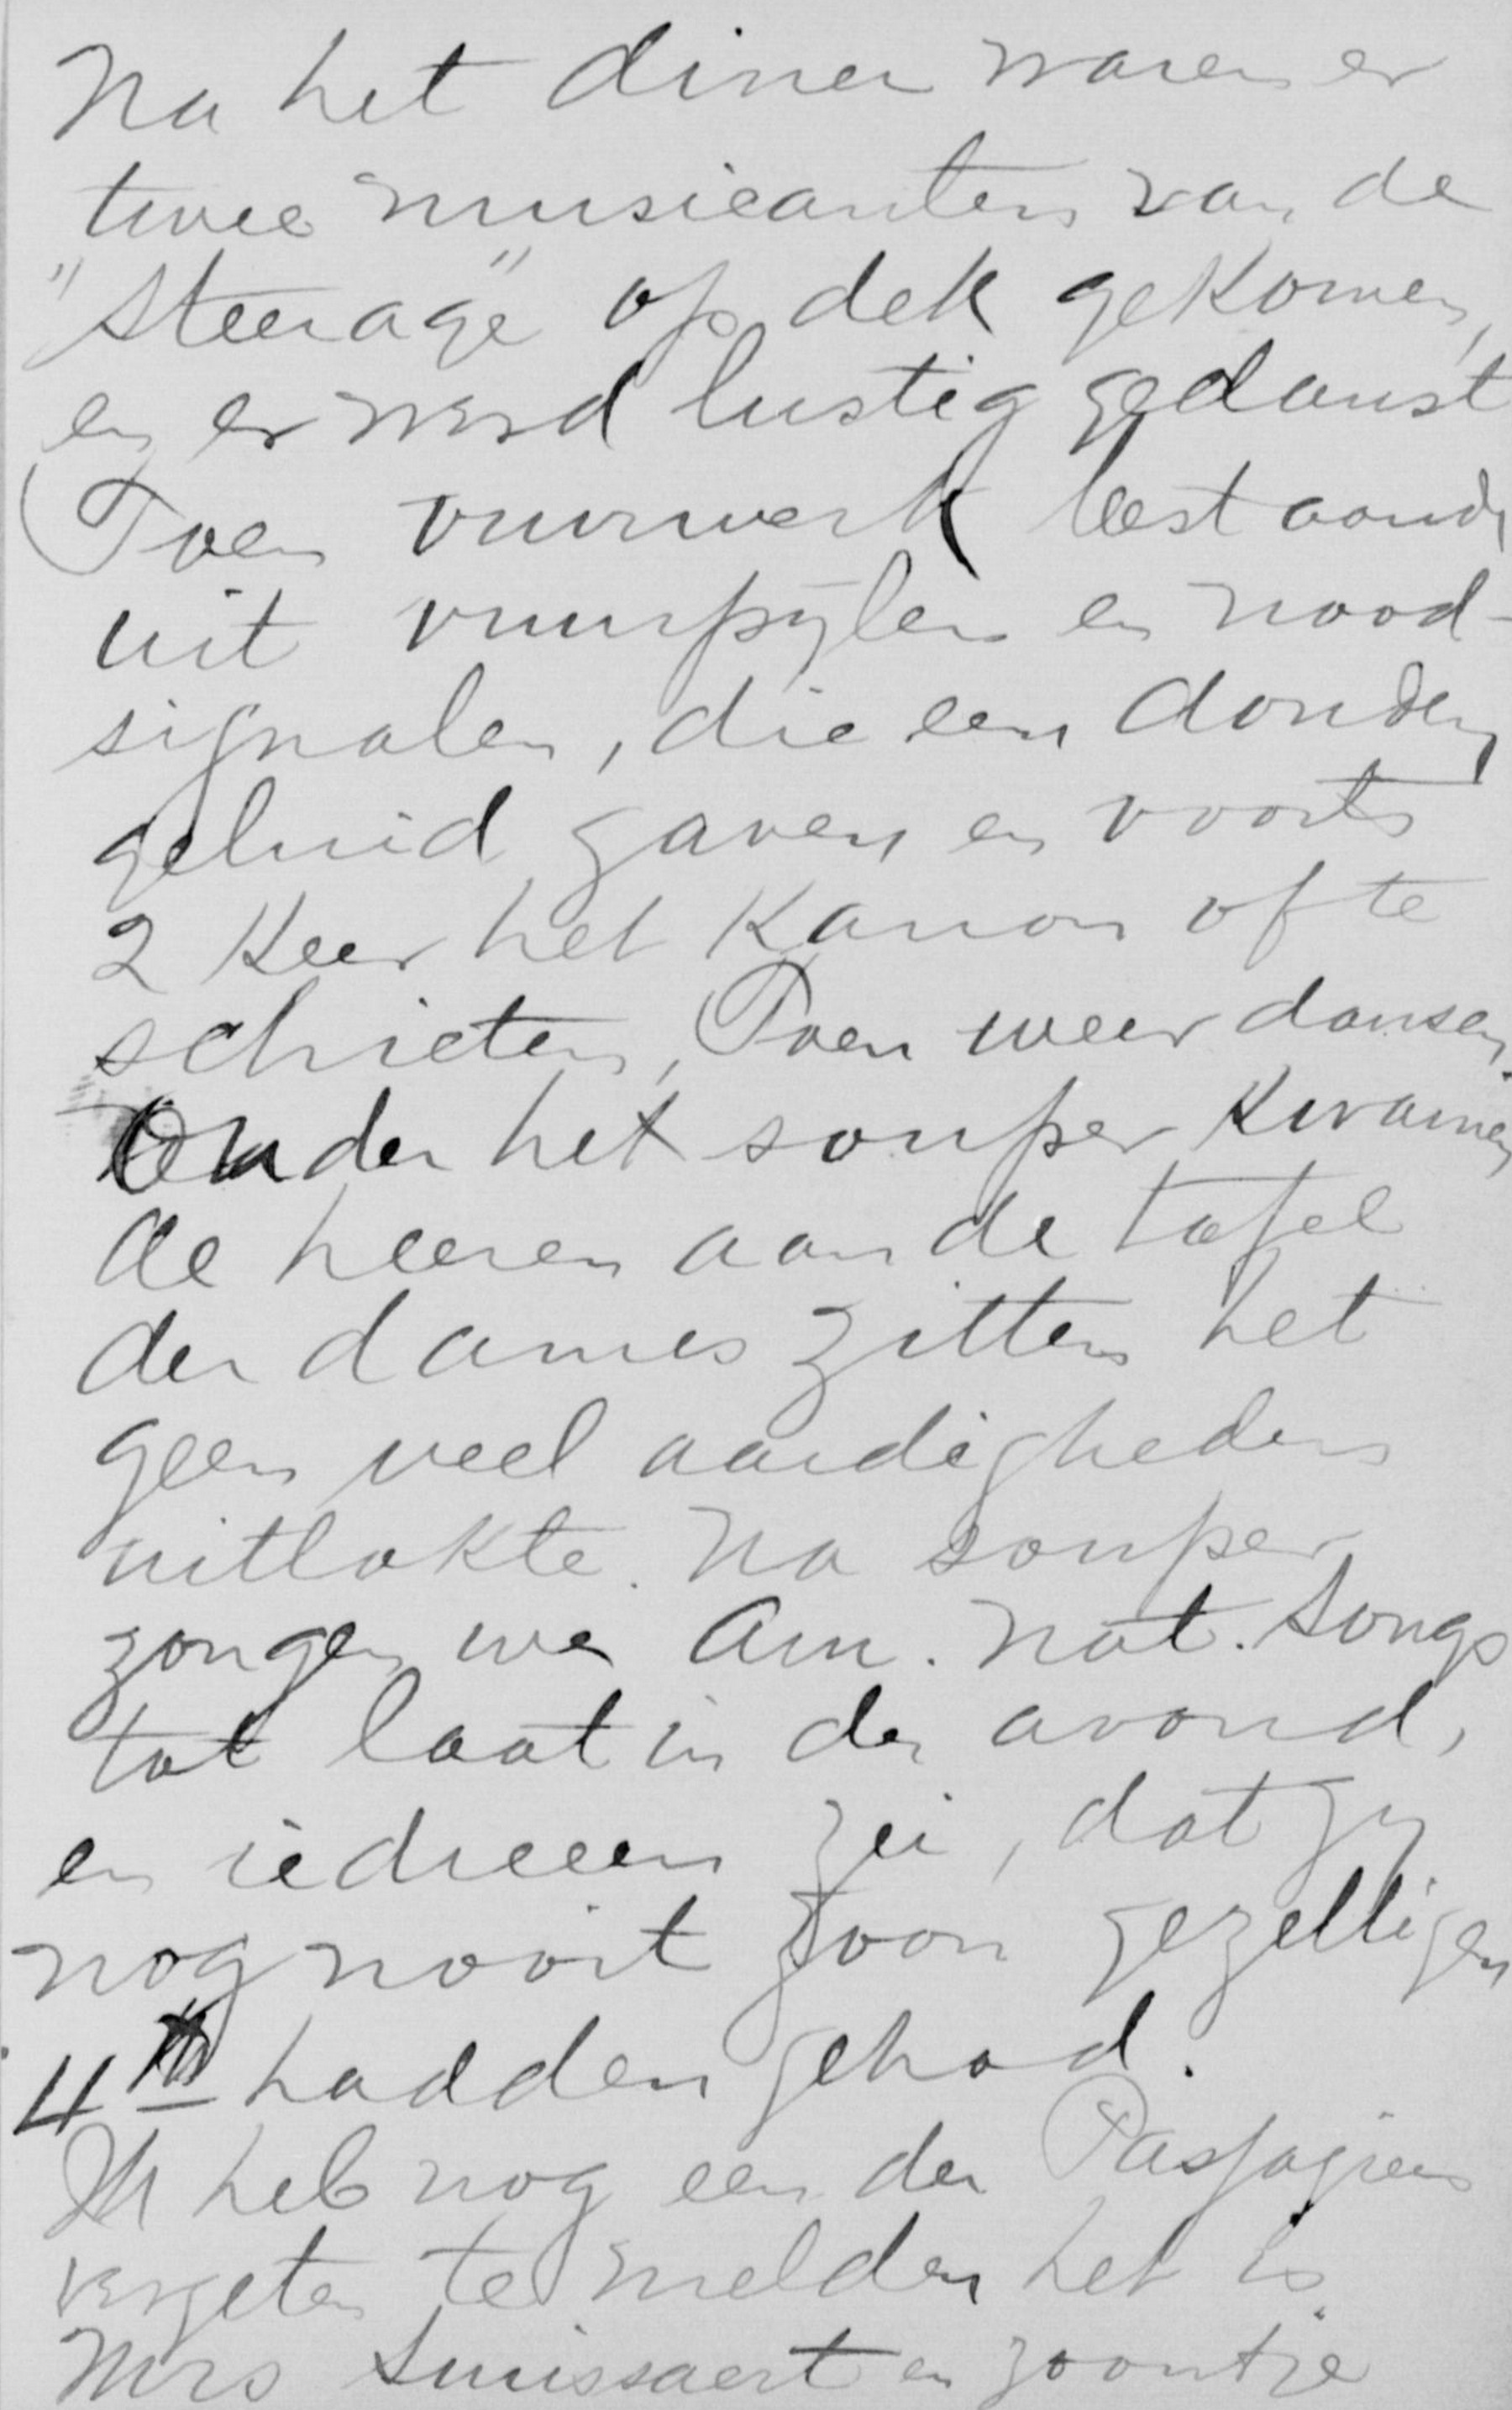 Na het diner waren er
twee musicanten van de
"Steerage" op dek gekomen,
en er werd lustig gedanst
Toen vuurwerk bestaande
uit vuurpylen en nood-
signalen, die een donder
geluid gaven en voorts
2 Keer het Kanon af te
schieten, Toen weer dansen.
Onder het souper Kwamen
de heeren aan de tafel
der dames zitten het
geen veel aardigheden
uitlokte. Na souper
zongen we Am. Nat. Songs
tot laat in den avond,
en iedreeen zei, dat zy
nog nooit zoon gezelligen
4th hadden gehad.
Ik heb nog een der Passagiers
vergeten te melden het is
Mrs Smissaert en zoontje